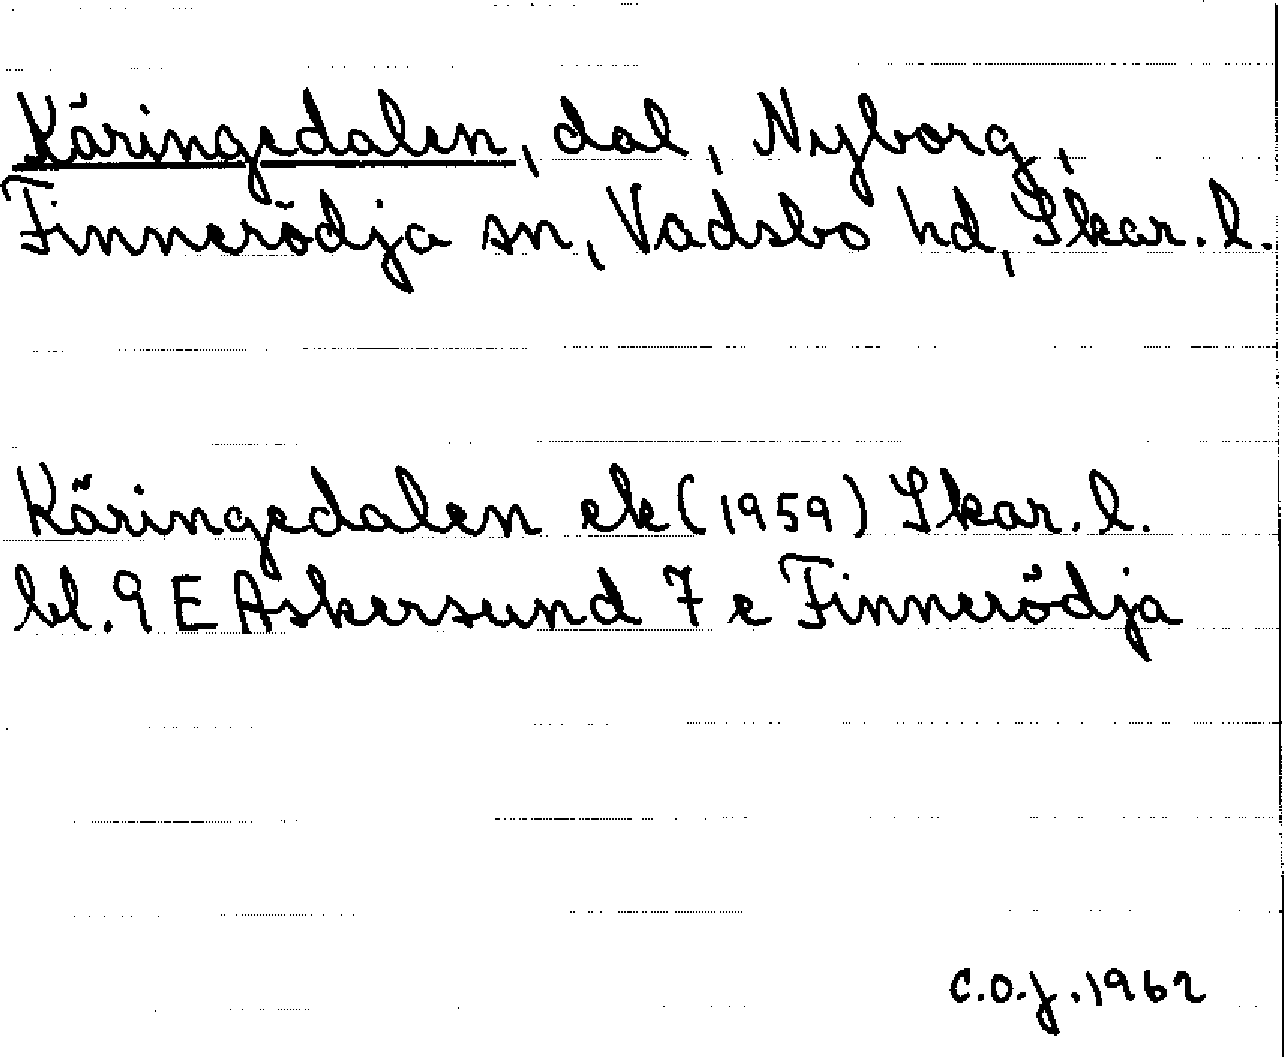 Käringedalen, dal, Nyborg,
Finnerödja sn, Vadsbo hd, Skar. l.
Käringedalen ek (1959) Skar. l.
bl. 9 E Askersund 7 e Finnerödja
C.O.J. 1962